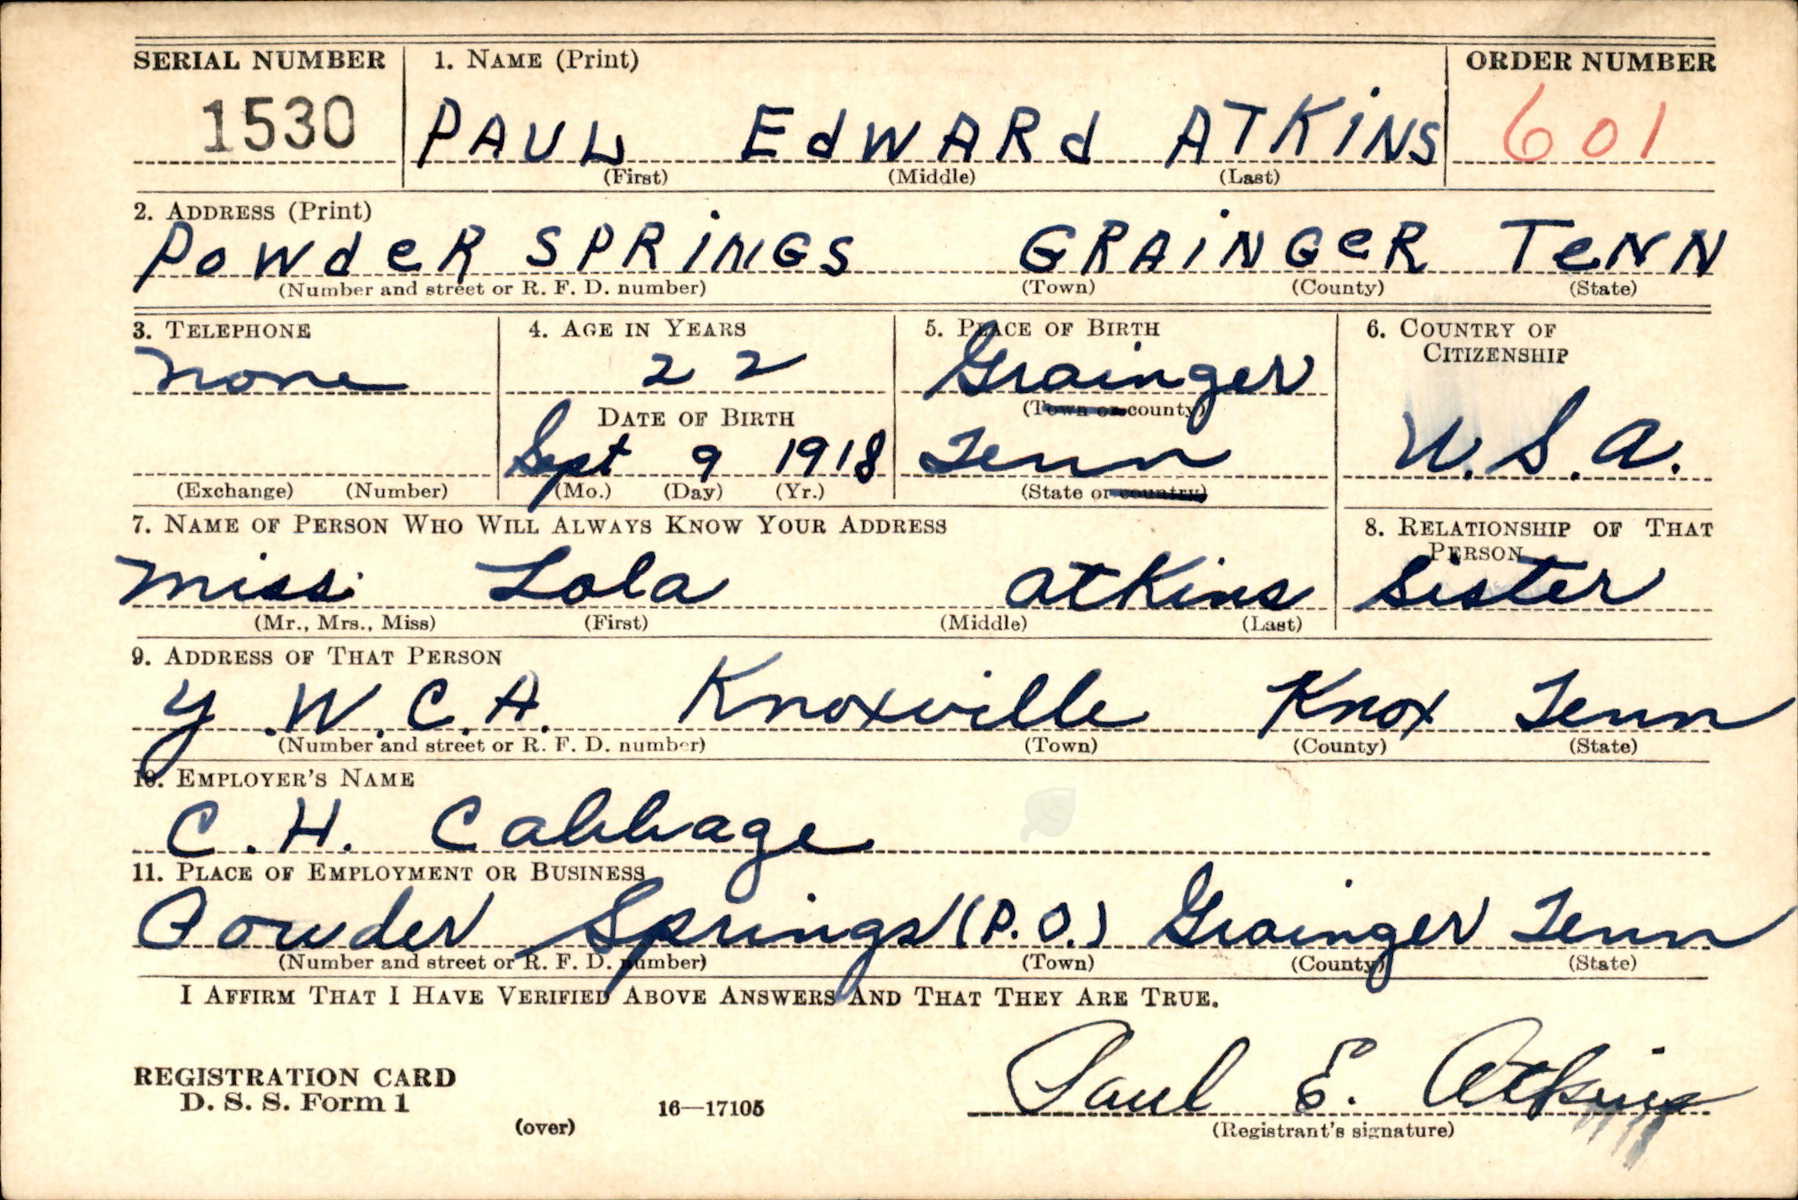 SERIAL NUMBER 1. NAME (Print) ORDER NUMBER
1530 PAUL EdWARd ATKiNS 601
(First) (Middle) (Last)
2. ADDRESS (Print)
PoWdeR SPRiNGS GRAiNGeR TeNN
(Number and street or R. F. D. number) (Town) (County) (State)
3. TELEPHONE 4. AGE IN YEARS 5. PLACE OF BIRTH 6. COUNTRY OF CITIZENSHIP
None 22 Grainger
DATE OF BIRTH (Town or county)
Sept 9 1918 Tenn U.S.A.
(Exchange) (Number) (Mo.) (Day) (Yr.) (State or country)
7. NAME OF PERSON WHO WILL ALWAYS KNOW YOUR ADDRESS 8. RELATIONSHIP OF THAT PERSON
Miss Lola Atkins Sister
(Mr., Mrs., Miss) (First) (Middle) (Last)
9. ADDRESS OF THAT PERSON
Y.W.C.A. Knoxville Knox Tenn
(Number and street or R. F. D. number) (Town) (County) (State)
10. EMPLOYER'S NAME
C.H. Cabbage
11. PLACE OF EMPLOYMENT OR BUSINESS
Powder Springs (P.O.) Grainger Tenn
(Number and street or R. F. D. number) (Town) (County) (State)
I AFFIRM THAT I HAVE VERIFIED ABOVE ANSWERS AND THAT THEY ARE TRUE.
REGISTRATION CARD
D. S. S. Form 1
(over) 16—17105
Paul E. Atkins
(Registrant's signature)